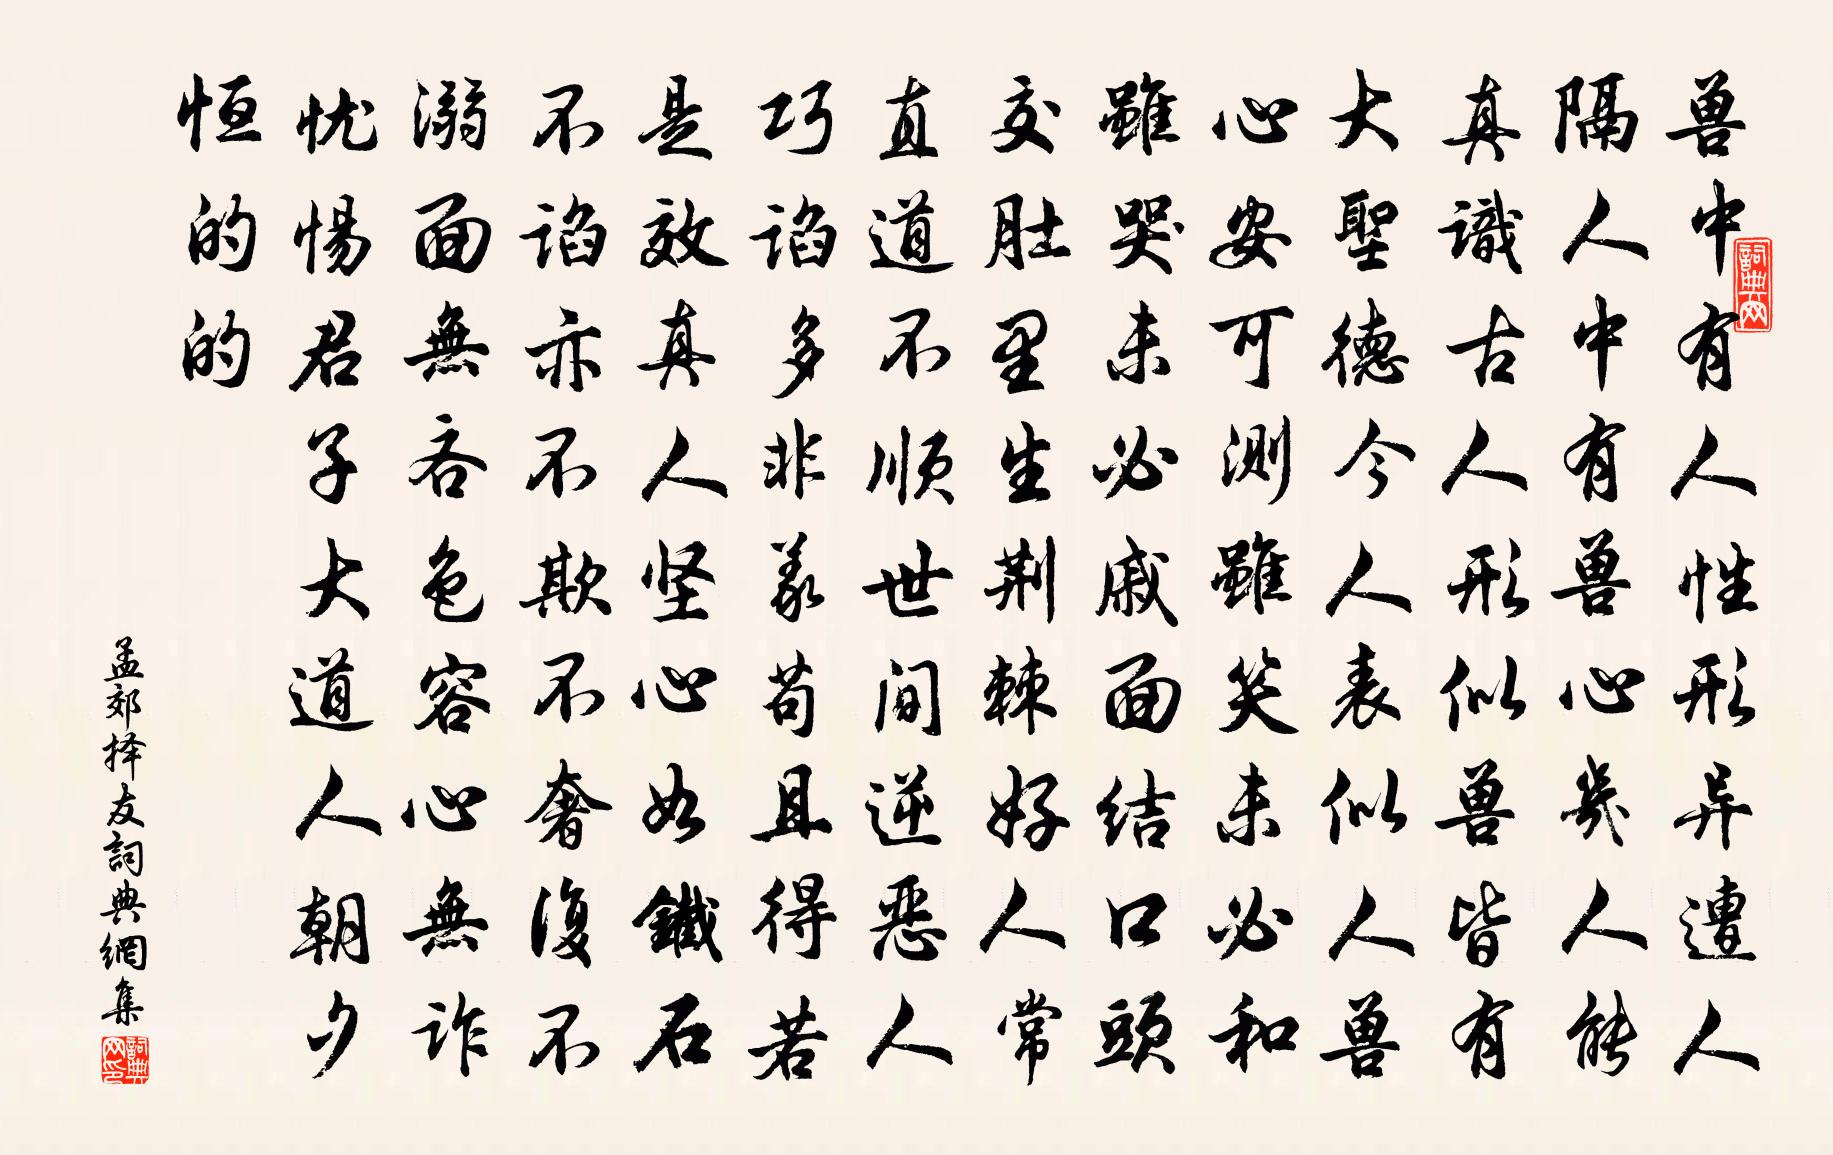 兽中有人性形异遭人
隔人中有兽心㡬人能
真識古人形似兽皆有
大聖德今人表似人兽
心安可测雖笑未必和
雖哭未必戚面结口頭
交肚里生荆棘好人常
直道不顺世间逆恶人
巧谄多非義苟且得若
是效真人坚心如鐵石
不谄亦不欺不奢復不
溺面無吝色容心無诈
忧惕君子大道人朝夕
恒的的
孟郊择友詞典網集
詞典网
詞典网印